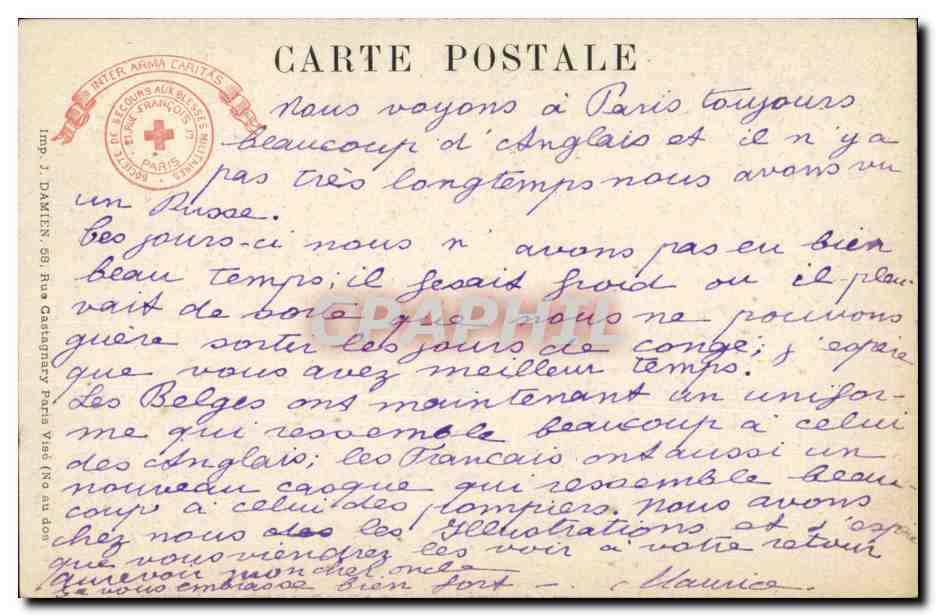 CARTE POSTALE
INTER ARMA CARITAS
SOCIÉTÉ DE SECOURS AUX BLESSÉS MILITAIRES
21, RUE FRANÇOIS 1er
PARIS
Nous voyons à Paris toujours
beaucoup d'Anglais et il n'y a
pas très longtemps nous avons vu
un Russe.
Ces jours-ci nous n'avons pas eu bien
beau temps; il fesait froid ou il pleu-
vait de sorte que nous ne pouvons
guère sortir les jours de congé; j'espère
que vous avez meilleur temps.
Les Belges ont maintenant un unifor-
me qui ressemble beaucoup à celui
des Anglais; les Francais ont aussi un
nouveau casque qui ressemble beau-
coup à celui des pompiers. Nous avons
chez nous les Illustrations et j'espère
que vous viendrez les voir à votre retour
Aurevoir mon cher oncle
Je vous embrasse bien fort - Maurice.
Imp. J. DAMIEN, 58, Rue Castagnary Paris Visé (No au dos
CPAPHIL